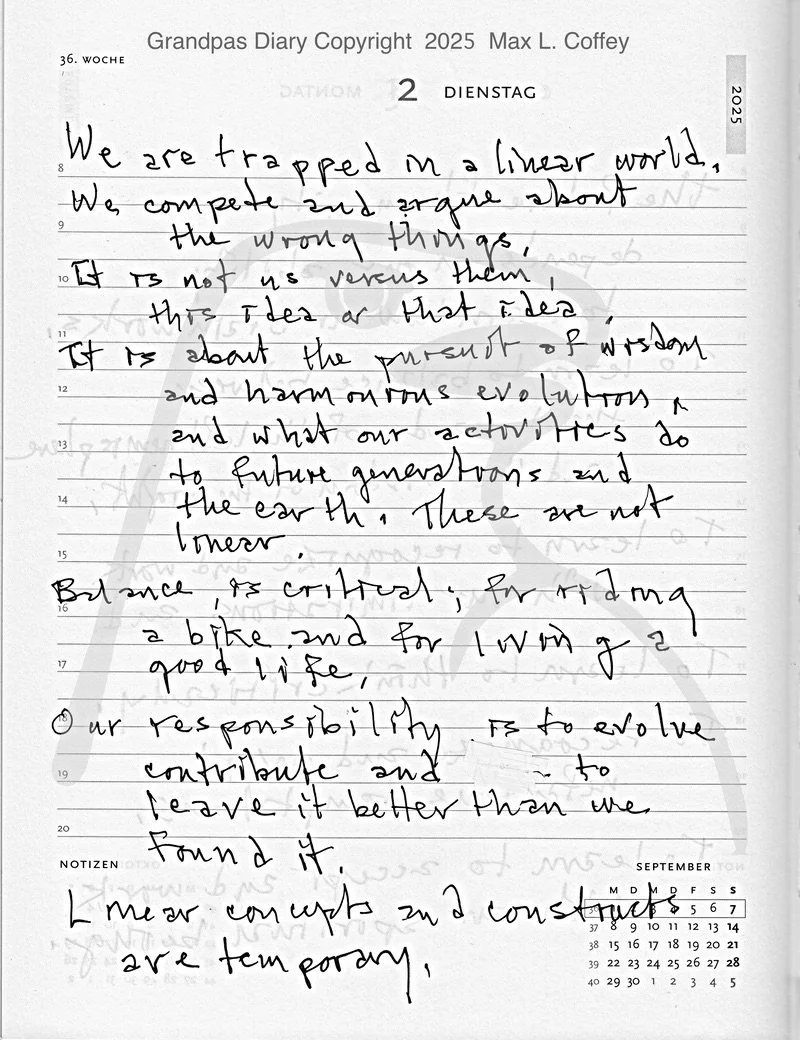 Grandpas Diary Copyright 2025 Max L. Coffey
36. WOCHE
2 DIENSTAG
2025
We are trapped in a linear world.
We compete and argue about
the wrong things,
It is not us versus them,
this idea or that idea.
It is about the pursuit of wisdom
and harmonious evolution,
and what our activities do
to future generations and
the earth. These are not
linear.
Balance is critical; for riding
a bike and for living a
good life,
Our responsibility is to evolve
contribute and to
leave it better than we
found it.
Linear concepts and constructs
are temporary.
8
9
10
11
12
13
14
15
16
17
18
19
20
NOTIZEN
SEPTEMBER
M D M D F S S
36 3 4 5 6 7
37 8 9 10 11 12 13 14
38 15 16 17 18 19 20 21
39 22 23 24 25 26 27 28
40 29 30 1 2 3 4 5